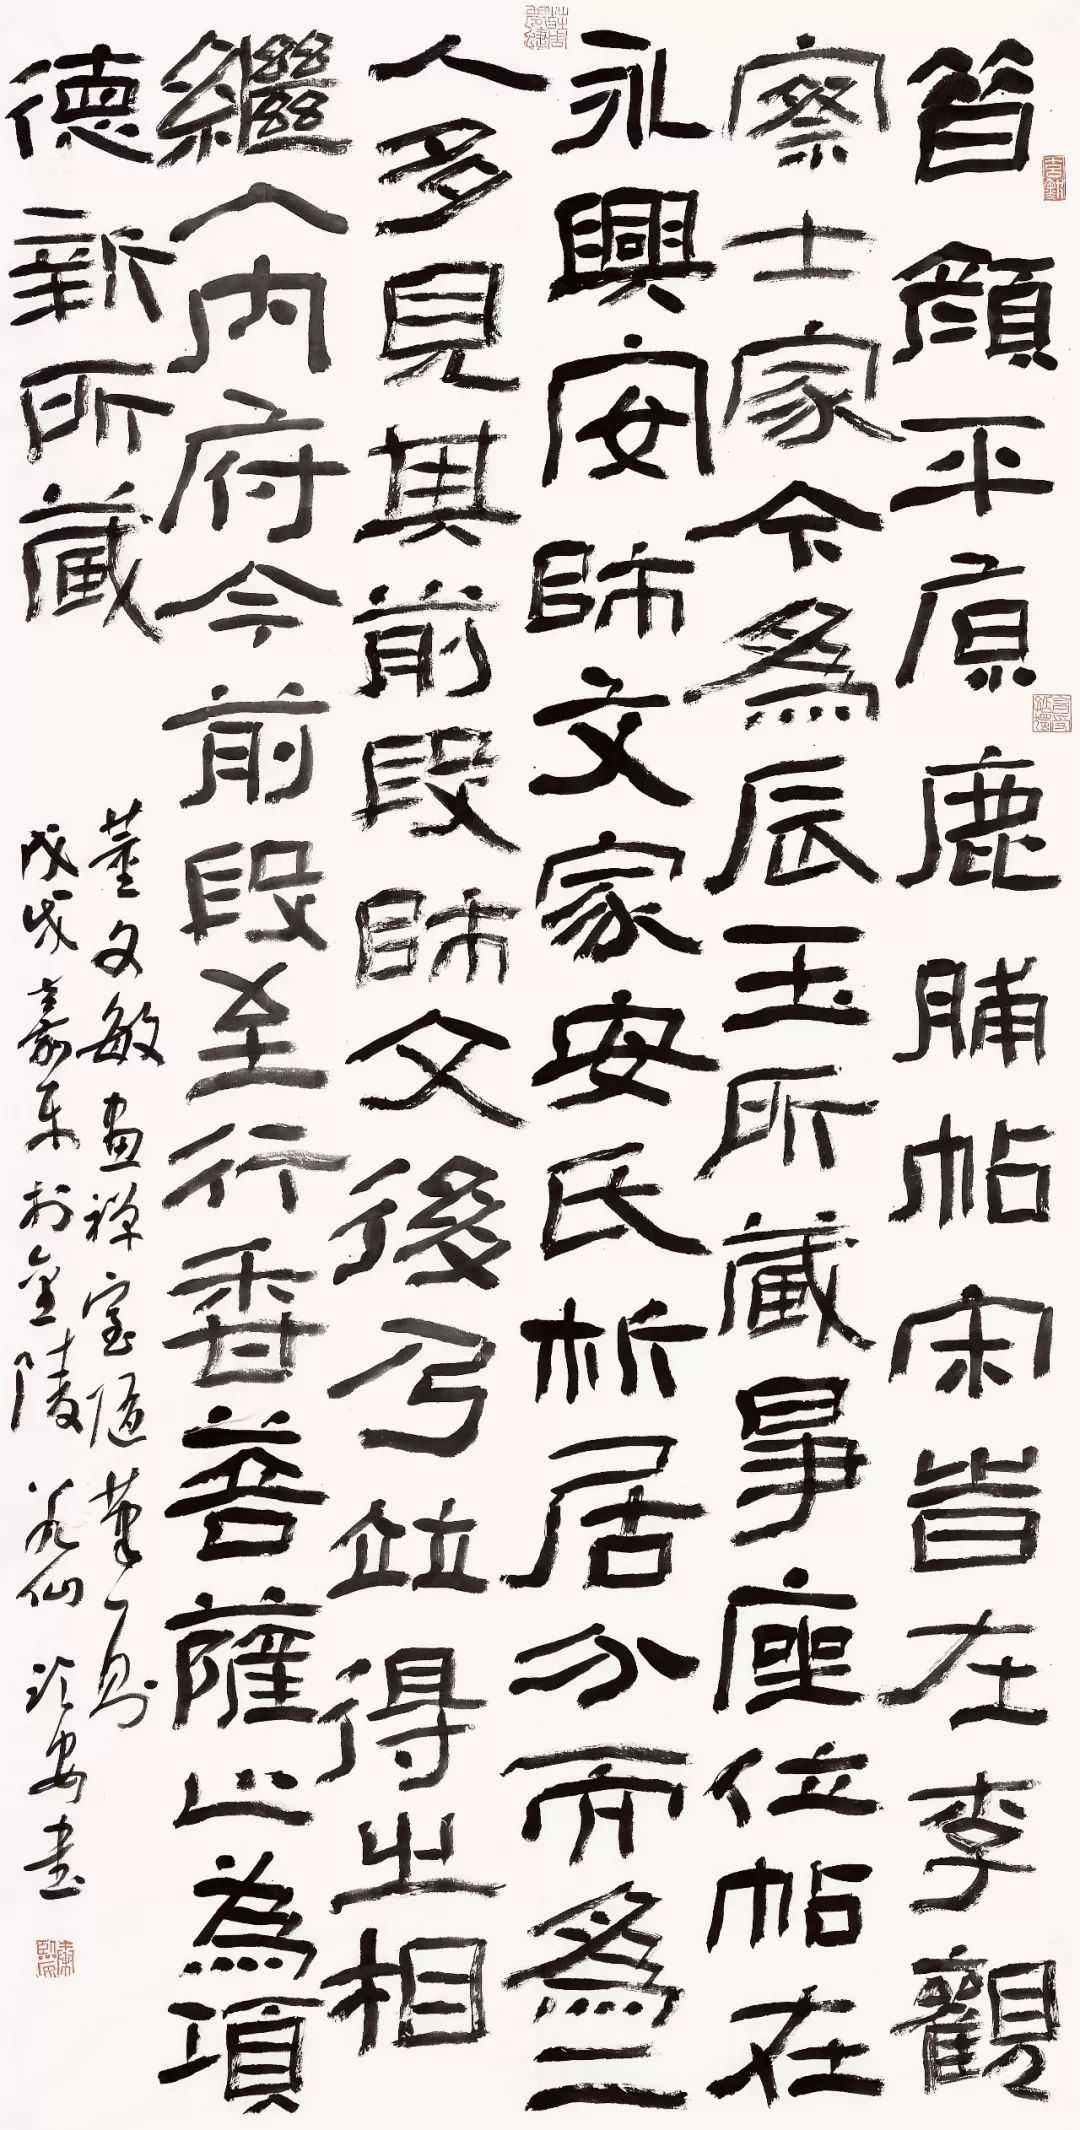 昔顏平原鹿脯帖宋旹在李觀
察士家今為辰玉所藏爭座位帖在
永興安師文家安氏析居分而為二
人多見其前段師文後乃竝得之相
繼入內府今前段至行香菩薩止為項
德新所藏
董文敏画禅室随筆一則
戊戌嘉平於金陵 仙 書